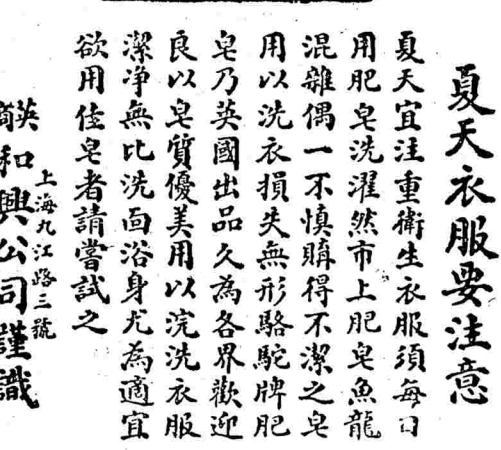 夏天衣服要注意
夏天宜注重衛生衣服須每日
用肥皂洗濯然市上肥皂魚龍
混雜偶一不慎購得不潔之皂
用以洗衣損失無形駱駝牌肥
皂乃英國出品久為各界歡迎
良以皂質優美用以浣洗衣服
潔净無比洗面浴身尤為適宜
欲用佳皂者請嘗試之
上海九江路三號
英商和興公司謹識